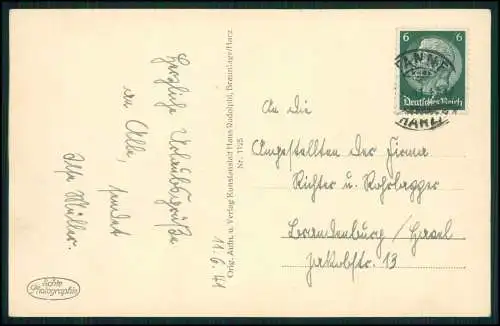 Herzliche Urlaubsgrüße
an Alle, sendet
Müller.
Echte
Photographie
Orig. Aufn. u. Verlag Kunstanstalt Hans Rudolphi, Braunlage/Harz
Nr. 1125
11.6.41
6 6
Deutsches Reich
TANNE
HARZ
An die
Angestellten der Firma
Richter u. Rohrlagger
Brandenburg / Havel
Jakobstr. 13